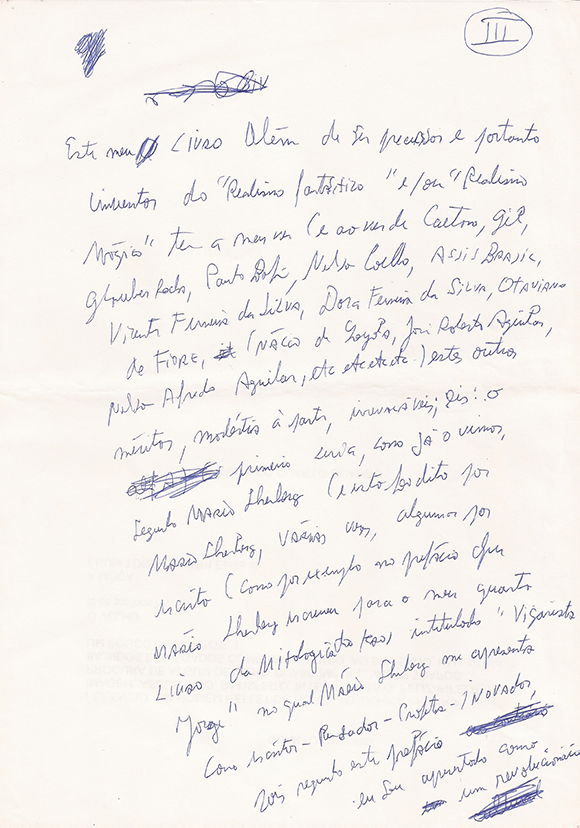 III
Este meu LIVRO Além de ser precursor e portanto
inventor do "Realismo fantástico" e/ou "Realismo
Mágico" tem a meu ver (e ao ver de Caetano, Gil,
Glauber Rocha, Paulo Nelson Coelho, ASSIS BRASIL,
Vicente Ferreira da SILVA, Dora Ferreira da SILVA, OTAVIANO
de FIORE, INÁCIO de Loyola, José Roberto Aguilar,
Nelson Alfredo Aguilar, etc etc etc etc.) estes outros
méritos, modéstia à parte, Eis: o
primeiro seria, como JÁ o vimos,
Segundo MARIO Shenberg (e isto foi dito por
MARIO Shenberg, VÁRIAS vezes, algumas por
escrito (como por exemplo no prefácio que
MÁRIO Shenberg escreveu para o meu quarto
LIVRO da Mitologia do Kaos, intitulado "Vigarista
Jorge" no qual MÁRIO Shenberg me apresenta
como escritor-Pensador-Profeta-iNOVADOR,
pois segundo este prefácio
eu sou apresentado como
um revolucionário